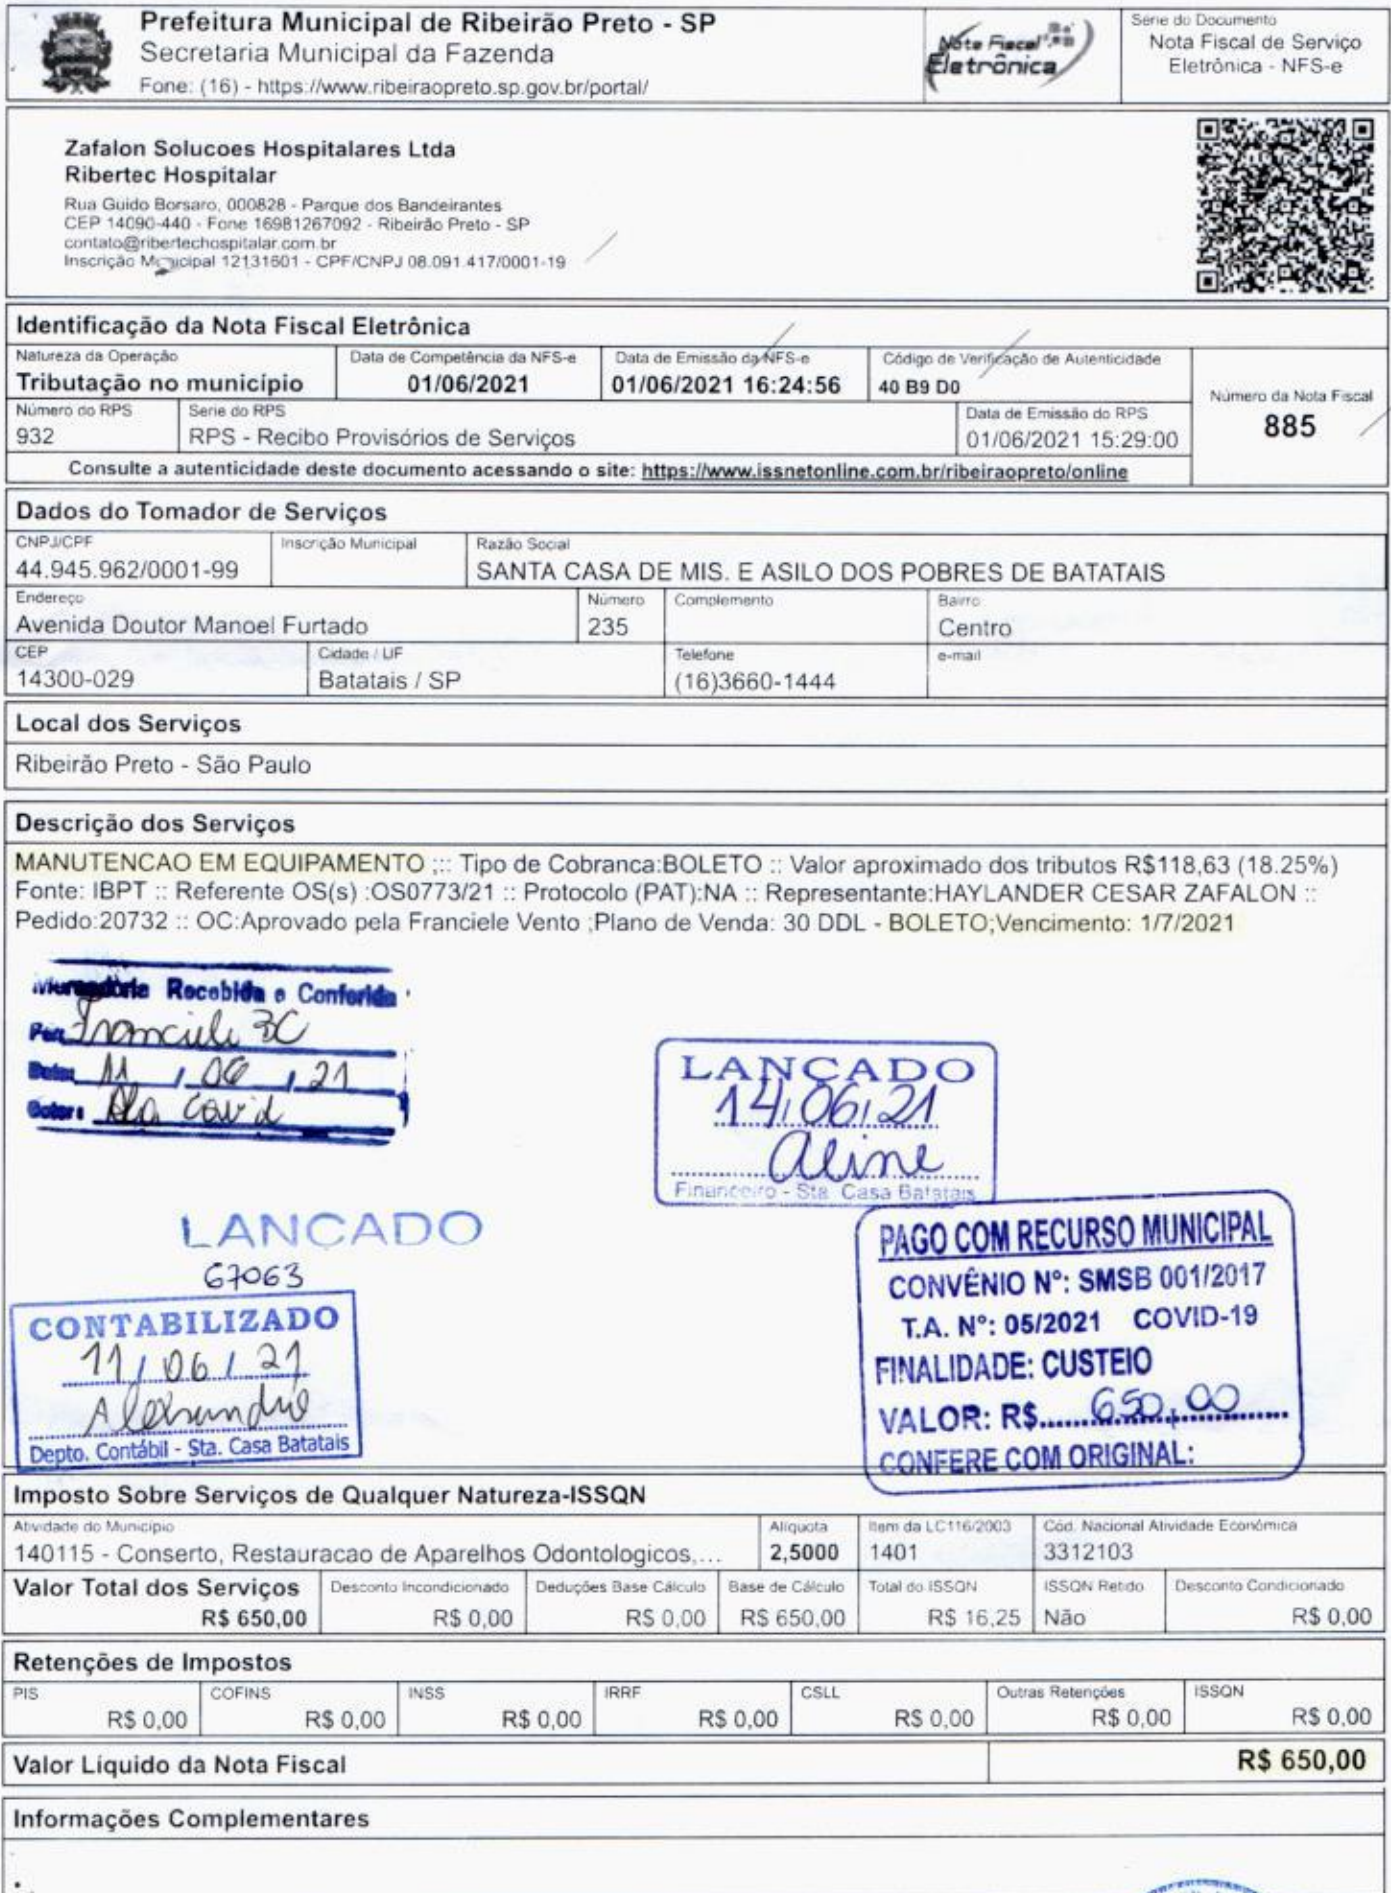 Prefeitura Municipal de Ribeirão Preto - SP
Secretaria Municipal da Fazenda
Fone: (16) - https://www.ribeiraopreto.sp.gov.br/portal/
Nota Fiscal
Eletrônica
Série do Documento
Nota Fiscal de Serviço
Eletrônica - NFS-e
Zafalon Solucoes Hospitalares Ltda
Ribertec Hospitalar
Rua Guido Borsaro, 000828 - Parque dos Bandeirantes
CEP 14090-440 - Fone 16981267092 - Ribeirão Preto - SP
contato@ribertechospitalar.com.br
Inscrição Municipal 12131601 - CPF/CNPJ 08.091.417/0001-19
Identificação da Nota Fiscal Eletrônica
Natureza da Operação
Tributação no município
Data de Competência da NFS-e
01/06/2021
Data de Emissão da NFS-e
01/06/2021 16:24:56
Código de Verificação de Autenticidade
40 B9 D0
Número da Nota Fiscal
885
Número do RPS
932
Serie do RPS
RPS - Recibo Provisórios de Serviços
Data de Emissão do RPS
01/06/2021 15:29:00
Consulte a autenticidade deste documento acessando o site: https://www.issnetonline.com.br/ribeiraopreto/online
Dados do Tomador de Serviços
CNPJ/CPF
44.945.962/0001-99
Inscrição Municipal
Razão Social
SANTA CASA DE MIS. E ASILO DOS POBRES DE BATATAIS
Endereço
Avenida Doutor Manoel Furtado
Número
235
Complemento
Bairro
Centro
CEP
14300-029
Cidade / UF
Batatais / SP
Telefone
(16)3660-1444
e-mail
Local dos Serviços
Ribeirão Preto - São Paulo
Descrição dos Serviços
MANUTENCAO EM EQUIPAMENTO ;:: Tipo de Cobranca:BOLETO :: Valor aproximado dos tributos R$118,63 (18.25%)
Fonte: IBPT :: Referente OS(s) :OS0773/21 :: Protocolo (PAT):NA :: Representante:HAYLANDER CESAR ZAFALON ::
Pedido:20732 :: OC:Aprovado pela Franciele Vento ;Plano de Venda: 30 DDL - BOLETO;Vencimento: 1/7/2021
Mercadoria Recebida e Conferida
Por: Franciele
Data: 11 / 06 / 21
Setor: Ala Covid
LANÇADO
14/06/21
Aline
Financeiro - Sta. Casa Batatais
LANÇADO
67063
CONTABILIZADO
11 / 06 / 21
Alexandre
Depto. Contábil - Sta. Casa Batatais
PAGO COM RECURSO MUNICIPAL
CONVÊNIO Nº: SMSB 001/2017
T.A. Nº: 05/2021 COVID-19
FINALIDADE: CUSTEIO
VALOR: R$ 650,00
CONFERE COM ORIGINAL:
Imposto Sobre Serviços de Qualquer Natureza-ISSQN
Atividade do Município
140115 - Conserto, Restauracao de Aparelhos Odontologicos,...
Alíquota
2,5000
Item da LC116/2003
1401
Cód. Nacional Atividade Econômica
3312103
Valor Total dos Serviços
R$ 650,00
Desconto Incondicionado
R$ 0,00
Deduções Base Cálculo
R$ 0,00
Base de Cálculo
R$ 650,00
Total do ISSQN
R$ 16,25
ISSQN Retido
Não
Desconto Condicionado
R$ 0,00
Retenções de Impostos
PIS
R$ 0,00
COFINS
R$ 0,00
INSS
R$ 0,00
IRRF
R$ 0,00
CSLL
R$ 0,00
Outras Retenções
R$ 0,00
ISSQN
R$ 0,00
Valor Líquido da Nota Fiscal
R$ 650,00
Informações Complementares